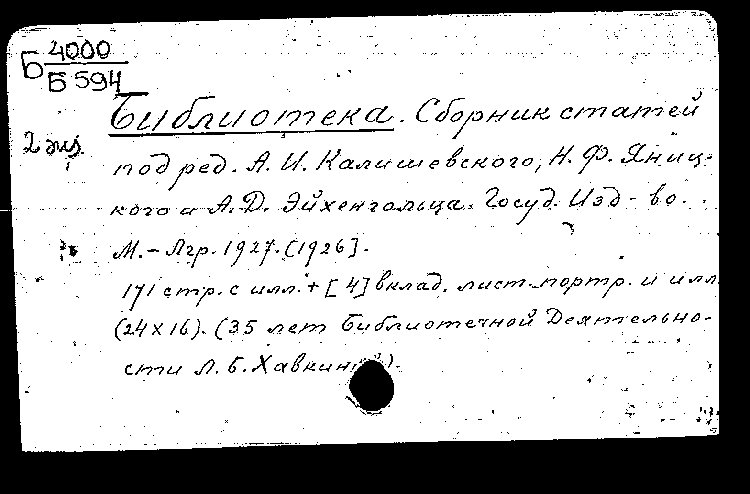 Б 4000
Б 594
Библиотека. Сборник статей
2 экз.
под ред. А. И. Калишевского, Н. Ф. Яниц-
кого и А. Д. Эйхенгольца. Госуд. Изд-во.
М. - Лгр. 1927. (1926].
171 стр. с илл. + [4] вклад. лист. портр. и илл.
(24х16). (35 лет Библиотечной Деятельно-
сти Л. Б. Хавкиной).